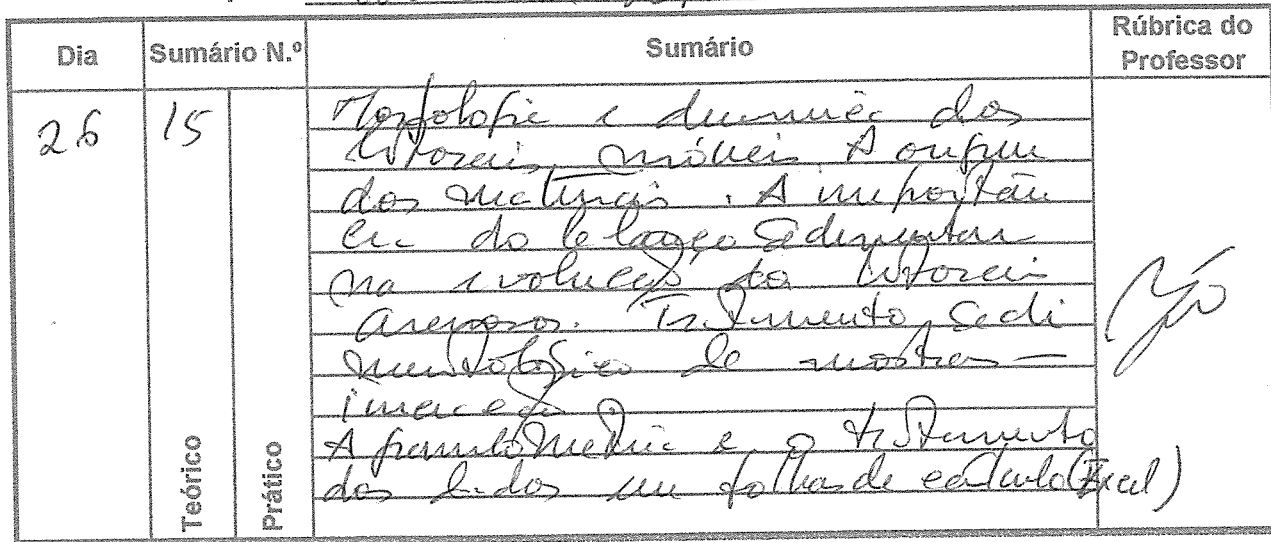 Dia Sumário N.º Sumário Rúbrica do Professor
26 15
Teórico
Prático
Morfologia e dinâmica dos
litorais móveis. A origem
dos materiais. A importân
cia do balanço sedimentar
na evolução dos litorais
arenosos. Tratamento sedi
mentológico de amostras —
A granulometria e o tratamento
dos dados em folhas de cálculo (Excel)